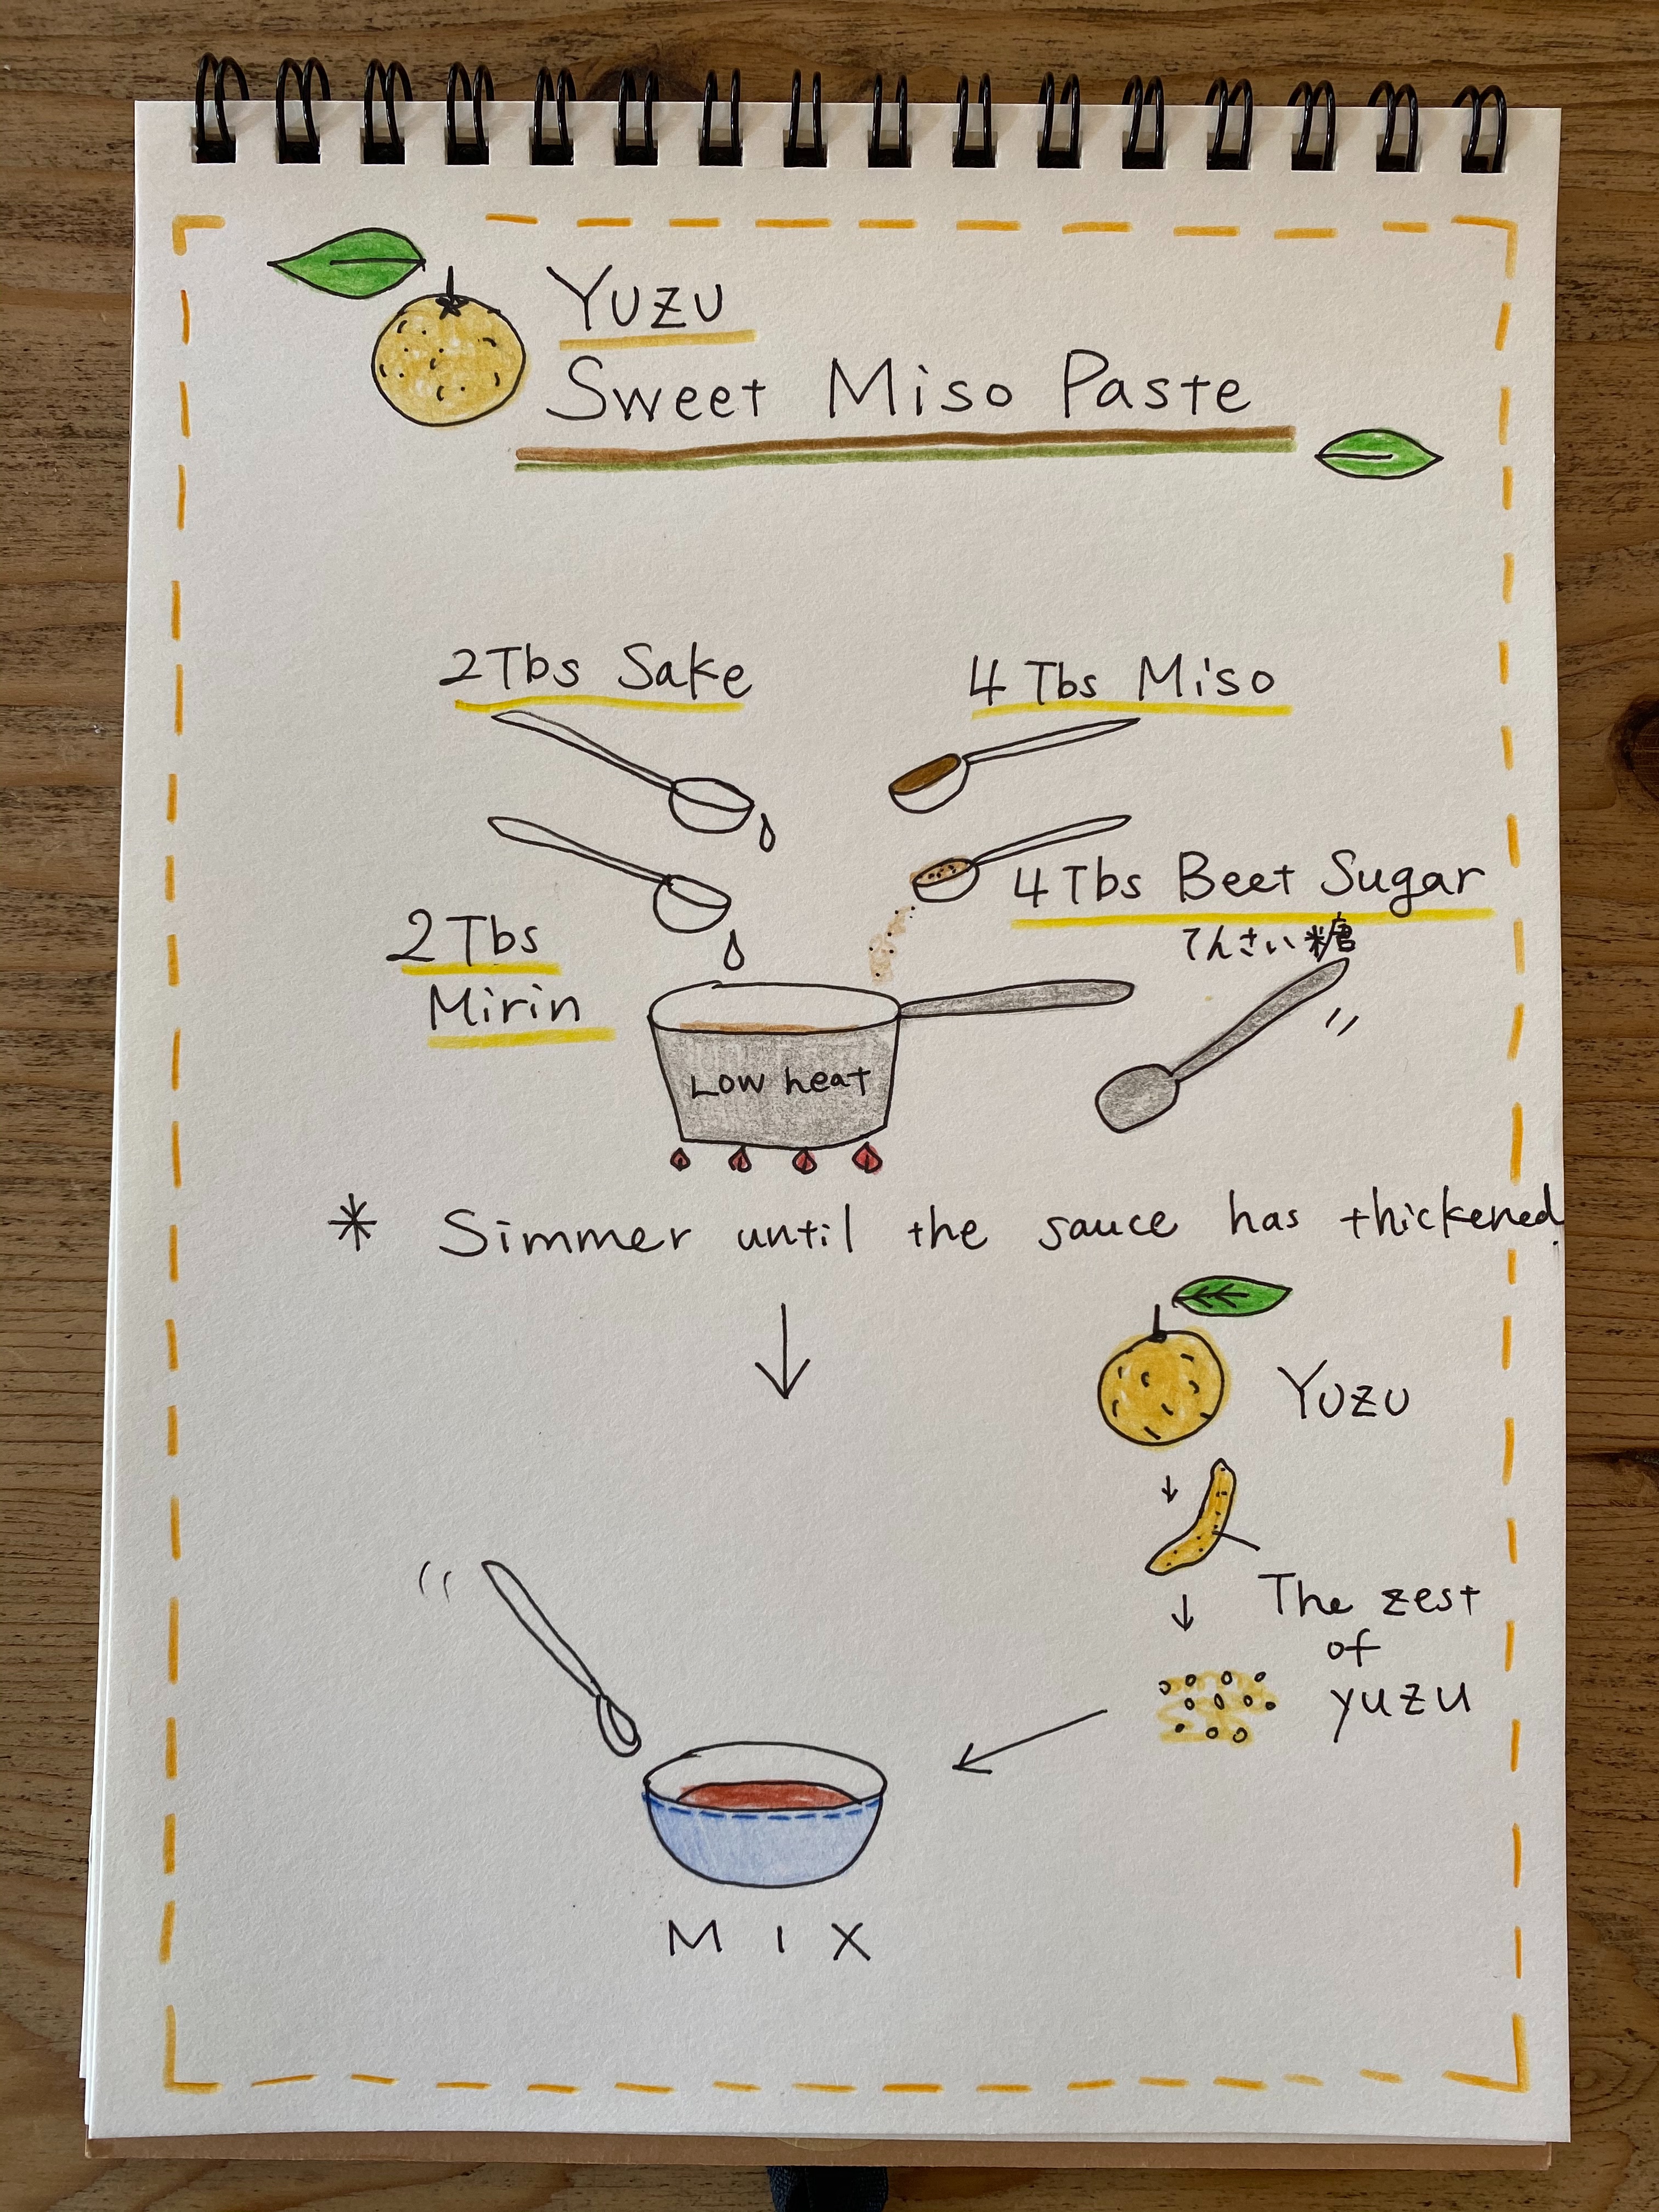 Yuzu
Sweet Miso Paste
2 Tbs Sake
4 Tbs Miso
4 Tbs Beet Sugar
てんさい糖
2 Tbs
Mirin
Low heat
* Simmer until the sauce has thickened.
Yuzu
The zest
of
yuzu
MIX